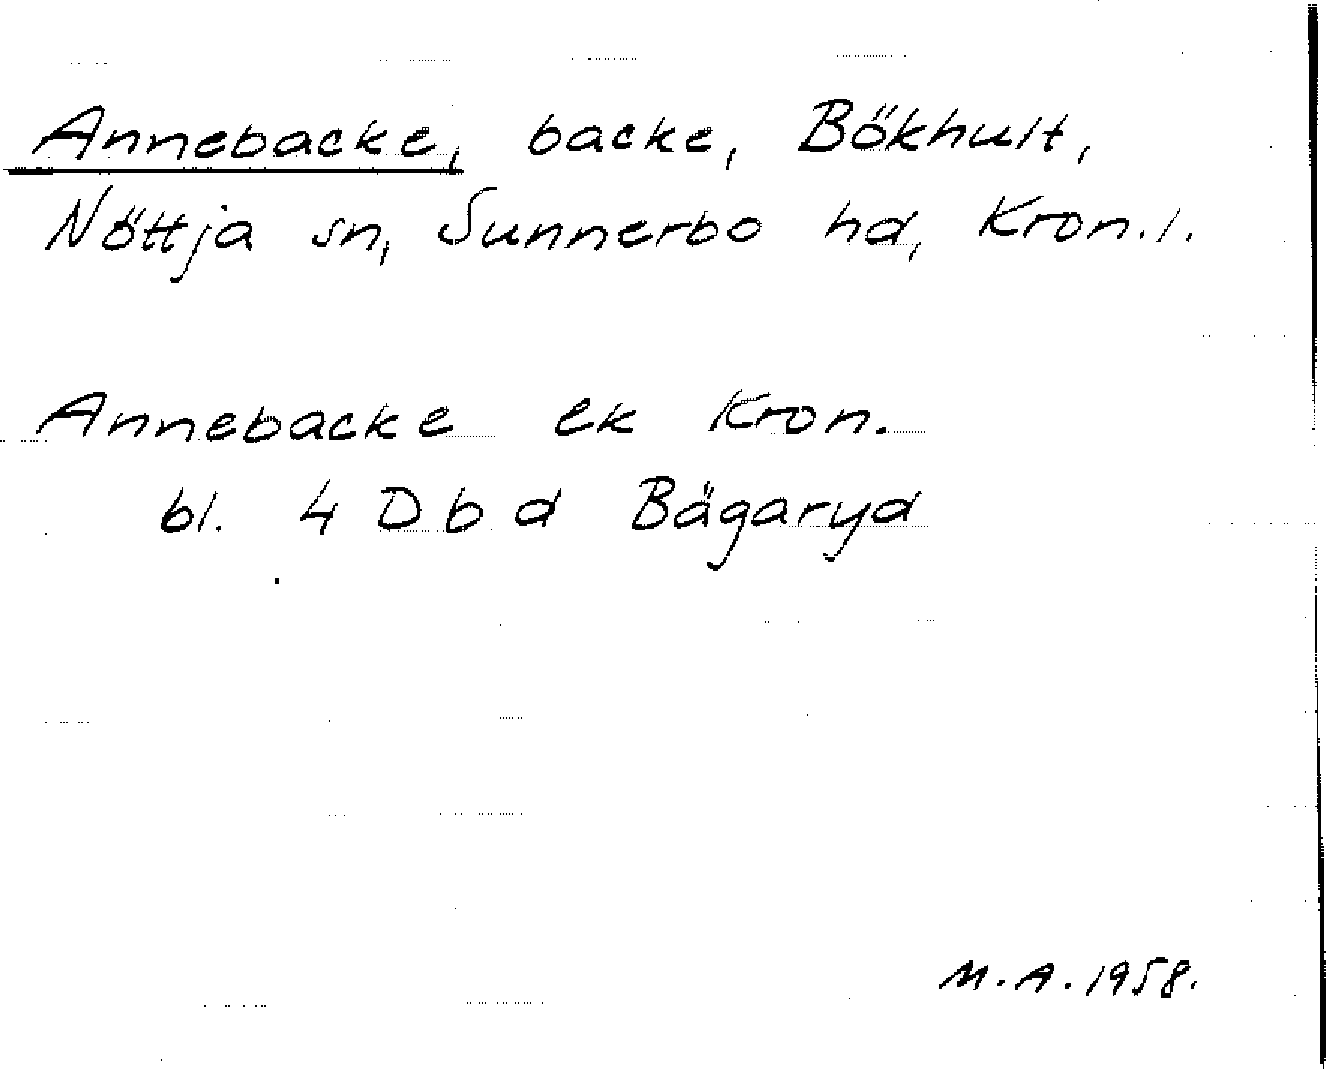 Annebacke, backe, Bökhult,
Nöttja sn, Sunnerbo hd, Kron. l.
Annebacke ek Kron.
bl. 4 D b d Bägaryd
M. A. 1958.